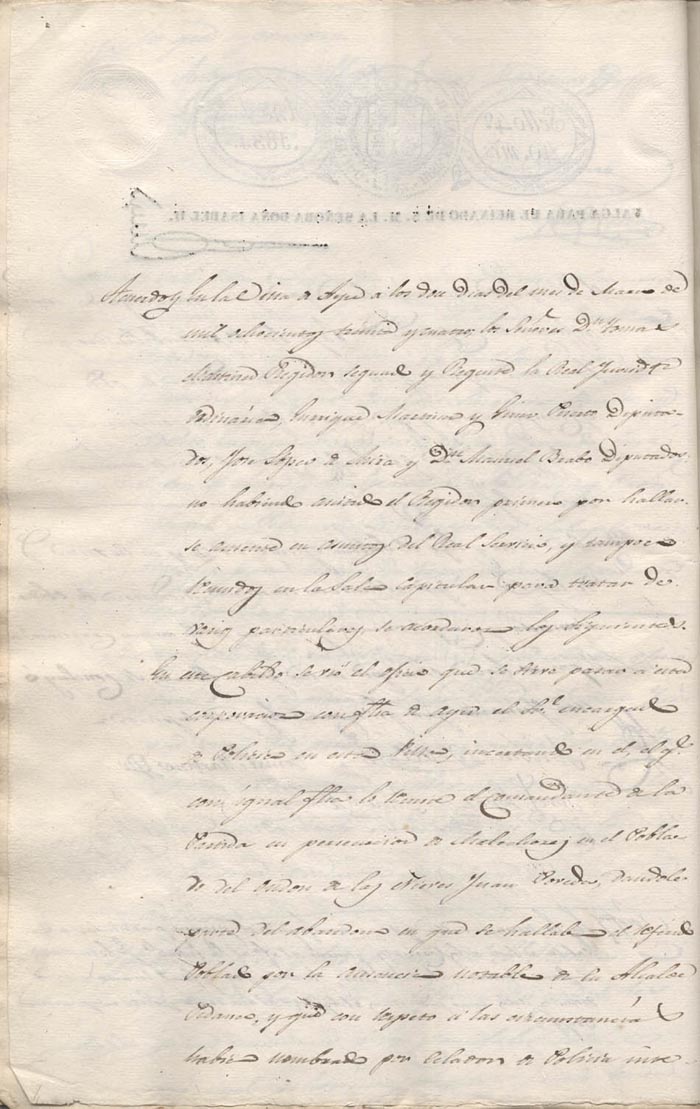 VALGA PARA EL REINADO DE S. M. LA SEÑORA DOÑA ISABEL II.
Acuerdo En la Villa de Aspe a los dos dias del mes de Marzo de
mil ochocientos treinta y cuatro, los Señores Dn Tomas
Regidor segund y Regente la Real Jurisd.
ordinaria, Enrique Martinez y Puerto Diputa-
dos, Jose Lopez de Mira y Dn Manuel Brabo Diputados
no habiend el Regidor primero por hallar
se ausente en asuntos del Real Servicio, y
reunidos en la Sala Capitular para tratar de
varios particulares, se acordaron los siguientes.
En este Cabildo se vió el oficio que se sirve pasar a esta
corporacion con fha de ayer el encargad
de Policia en esta Villa, incertand en el, el q.
con igual fha le el Comandante de la
Partida en persecucion de Malechores en el Pobla-
do del Ondon de las Nieves Juan Poveda, dandole
parte del abandono en que se hallaba el
Poblad por la ausencia notable de su Alcalde
Pedaneo, y que con respeto á las circunstancias
habia nombrado por Celador de Policia inte-